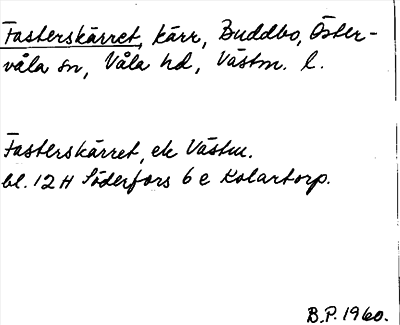 Fasterskärret, kärr, Buddbo, Öster-
våla sn, Våla hd, Västm. l.
Fasterskärret, ek Västm.
bl. 12 H Söderfors 6 e Kolartorp.
B.P. 1960.